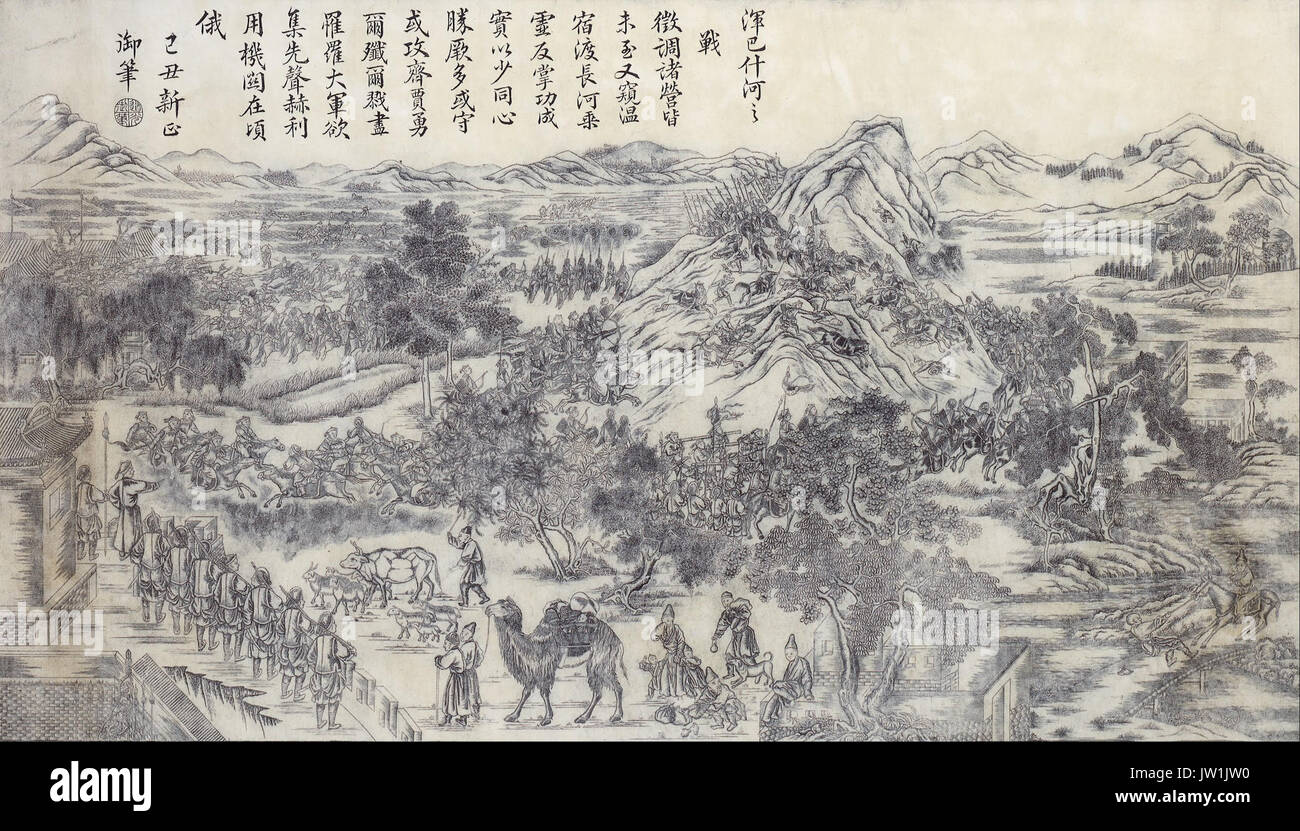 渾巴什河之
戰
徵調諸營皆
未至又窺温
宿渡長河乘
霊反掌功成
實以少同心
勝厥多或守
或攻齊賈勇
爾殲爾戮盡
罹羅大軍欲
集先聲赫利
用機闊在頃
俄
己丑新正
御筆
alamy stock photo
JW1JW0
www.alamy.com